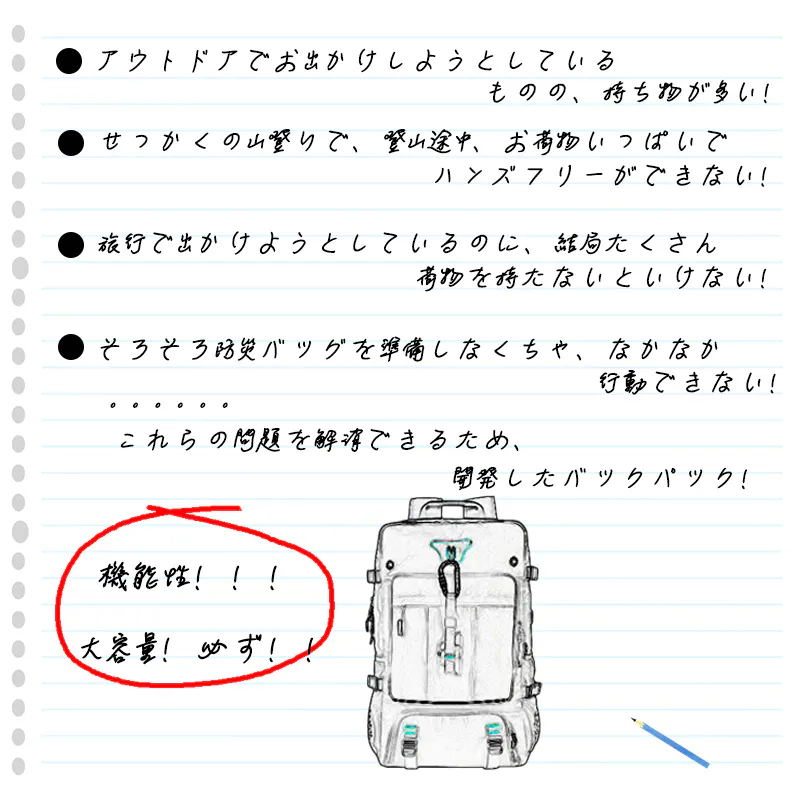 ● アウトドアでお出かけしようとしている
ものの、持ち物が多い!
● せっかくの山登りで、登山途中、お荷物いっぱいで
ハンズフリーができない!
● 旅行で出かけようとしているのに、結局たくさん
荷物を持たないといけない!
● そろそろ防災バッグを準備しなくちゃ、なかなか
行動できない!
。。。。。。
これらの問題を解決できるため、
開発したバックパック!
機能性!!!
大容量!必ず!!